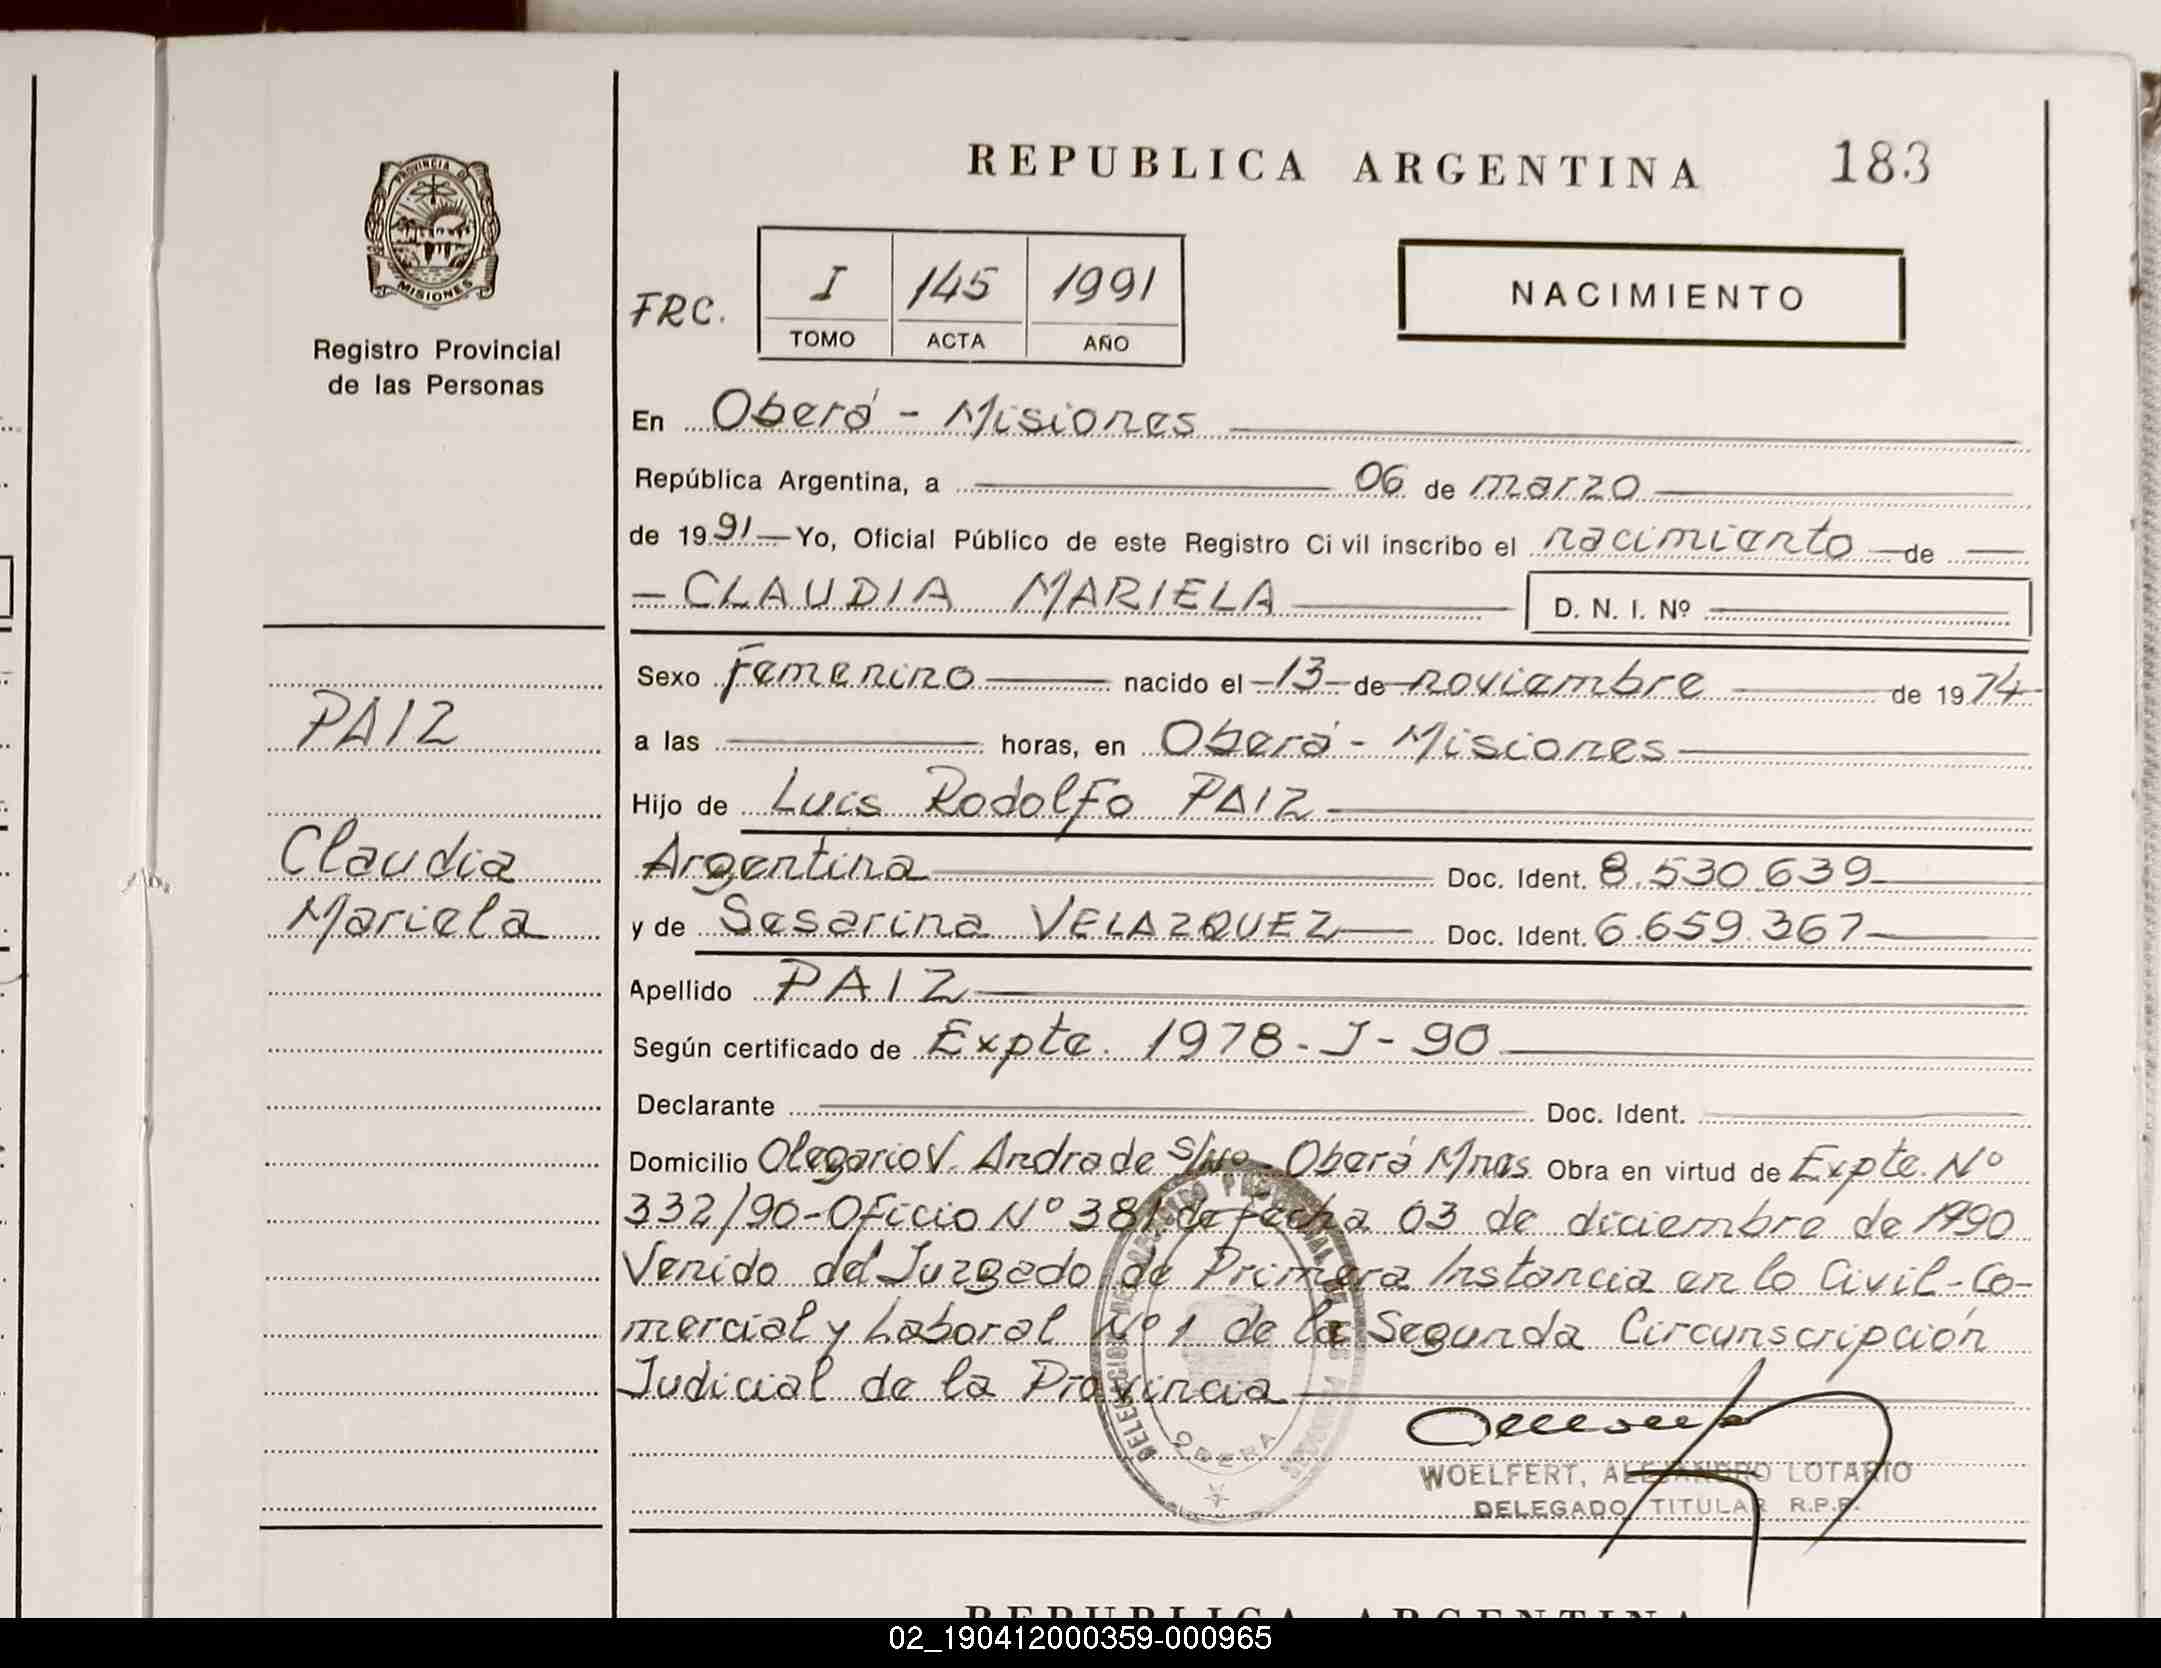 REPUBLICA ARGENTINA 183
PROVINCIA DE
MISIONES
Registro Provincial
de las Personas
FRC.
I 145 1991
TOMO ACTA AÑO
NACIMIENTO
En Oberá - Misiones
República Argentina, a 06 de marzo
de 1991 Yo, Oficial Público de este Registro Civil inscribo el nacimiento de
CLAUDIA MARIELA D. N. I. Nº
Sexo Femenino nacido el 13 de noviembre de 1974
PAIZ
a las horas, en Oberá - Misiones
Hijo de Luis Rodolfo PAIZ
Claudia
Argentina Doc. Ident. 8.530.639
Mariela
y de Sesarina VELAZQUEZ Doc. Ident. 6.659.367
Apellido PAIZ
Según certificado de Expte. 1978-J-90
Declarante Doc. Ident.
Domicilio Olegario V. Andrade s/nº - Oberá Mnes Obra en virtud de Expte. Nº
332/90-Oficio Nº 381 de fecha 03 de diciembre de 1990
Venido del Juzgado de Primera Instancia en lo Civil-Co-
mercial y Laboral Nº 1 de la Segunda Circunscripción
Judicial de la Provincia
OBERA
WOELFERT, ALEJANDRO LOTARIO
DELEGADO TITULAR R.P.P.
REPUBLICA ARGENTINA
02_190412000359-000965